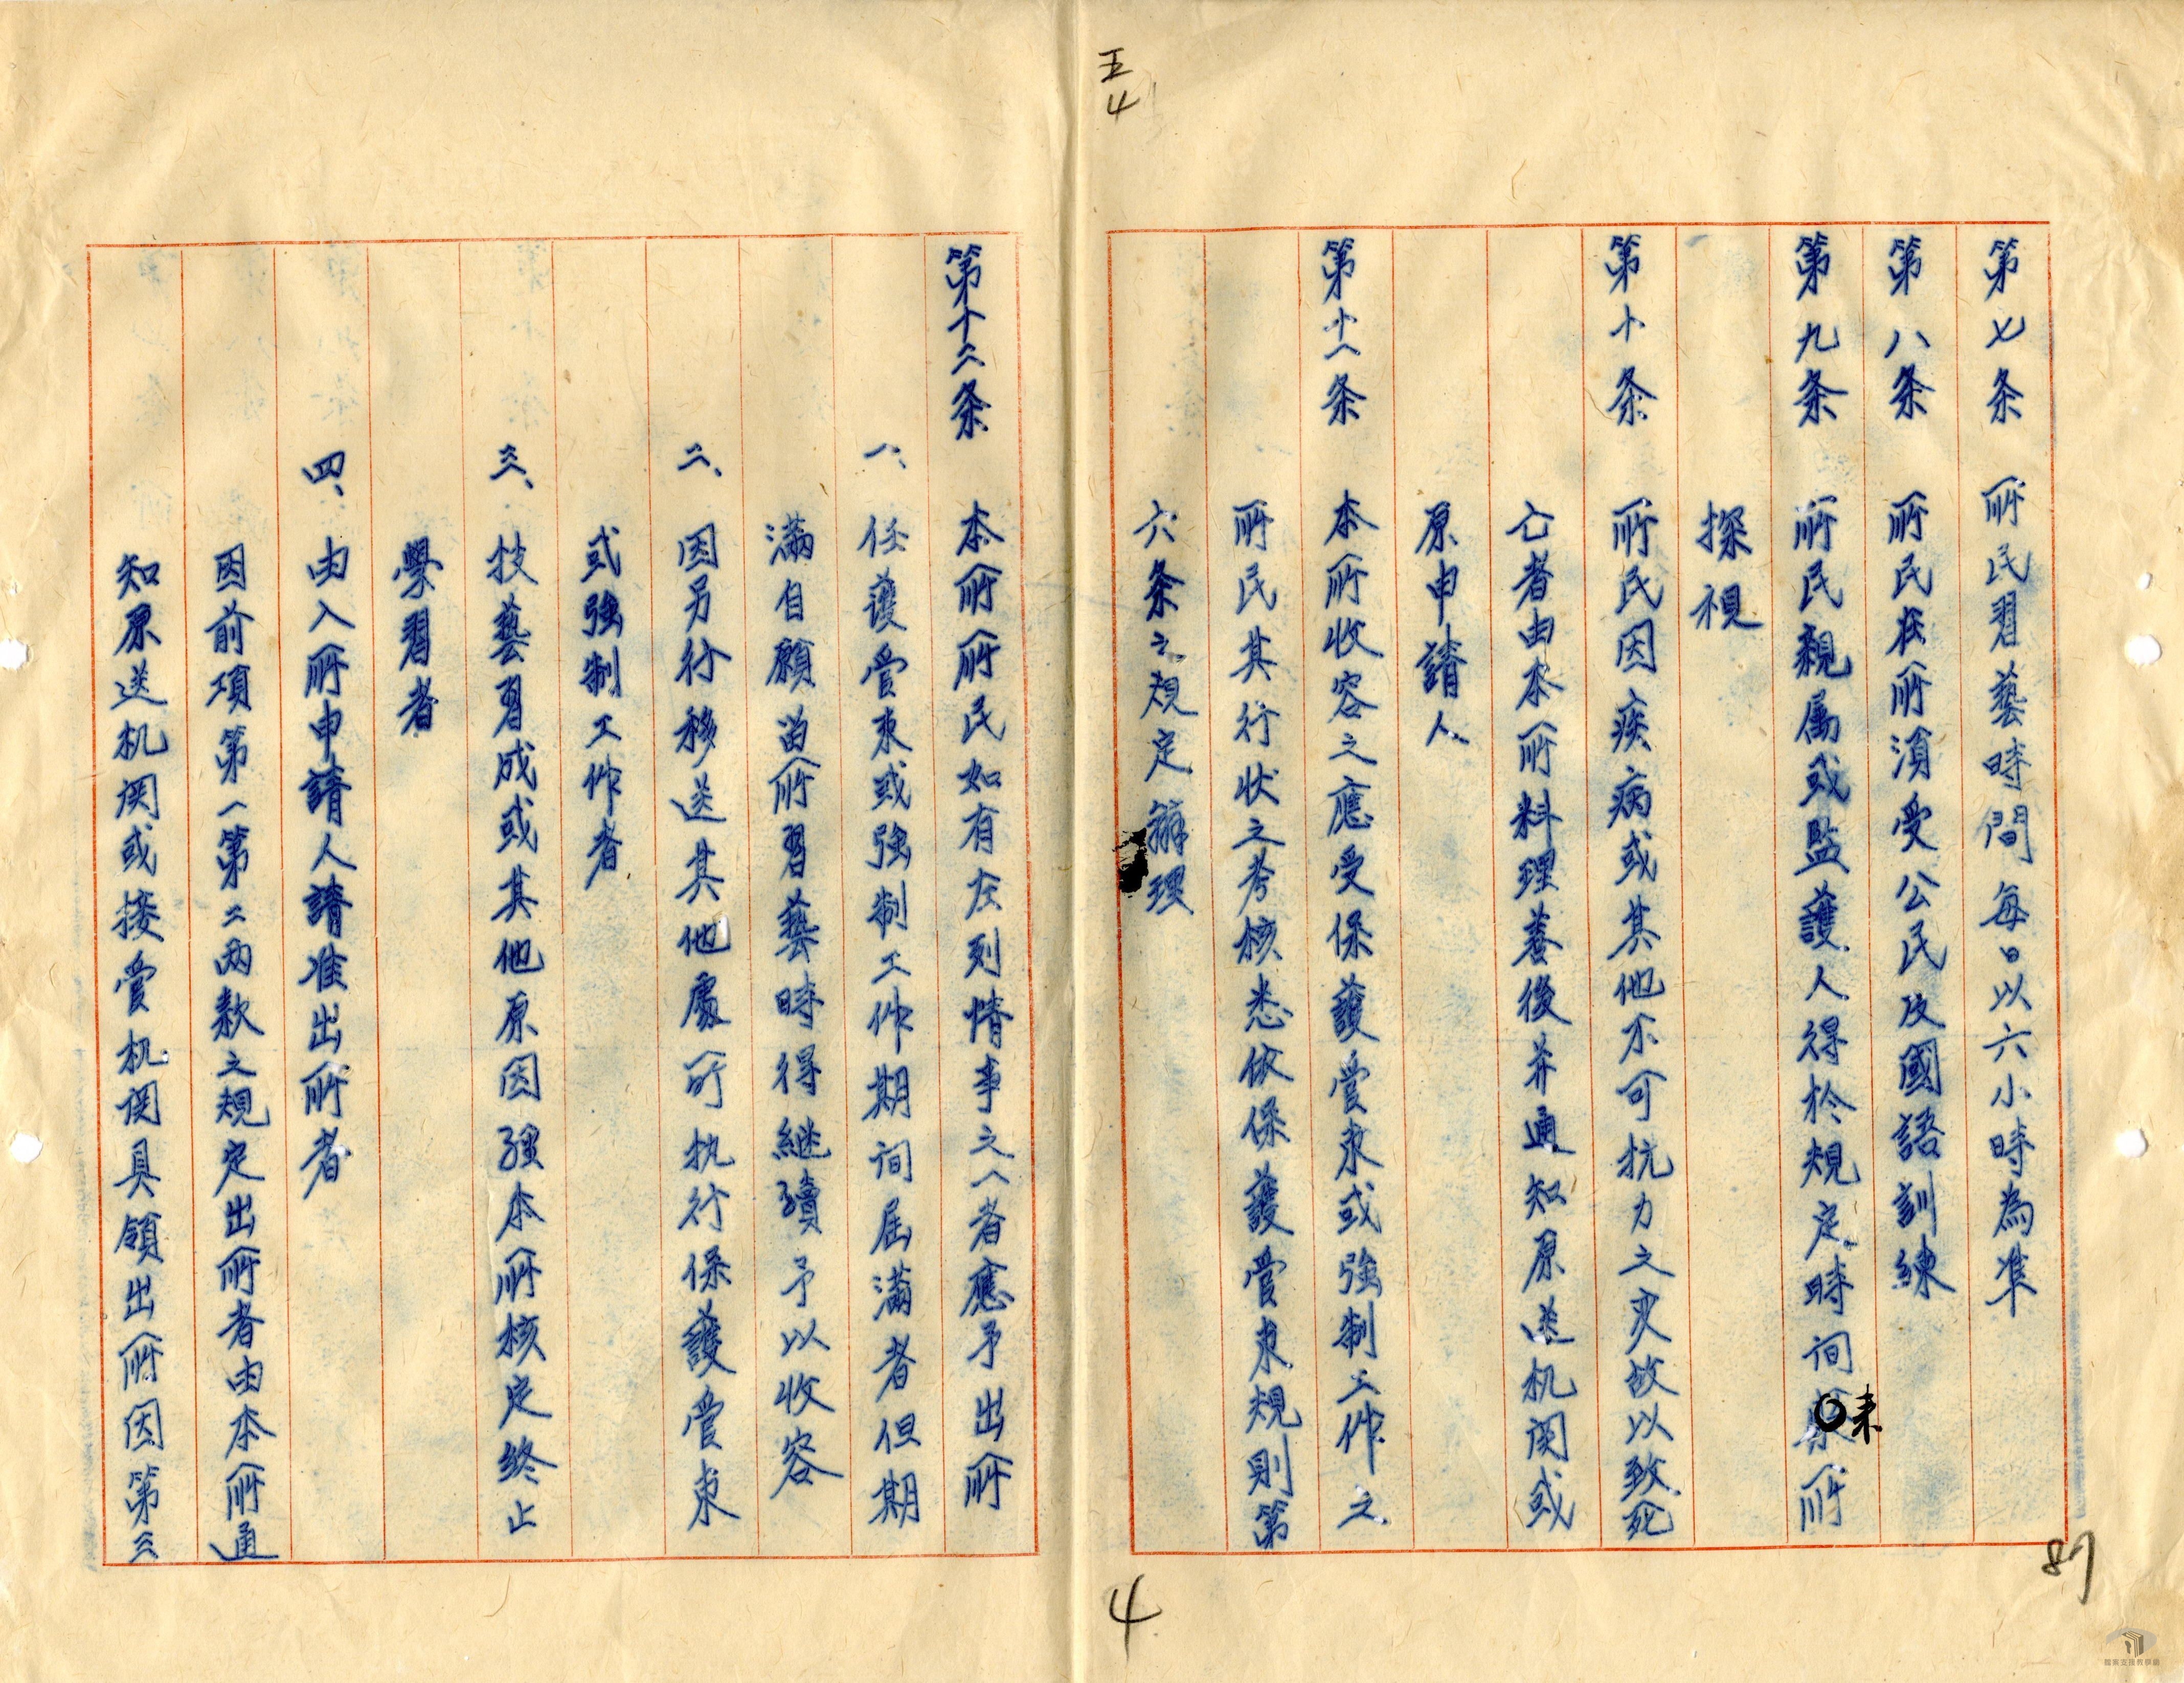 五
4
第七条 所民習藝時間每日以六小時為準
第八条 所民在所須受公民及國語訓練
第九条 所民親属或監護人得於規定時间来所
探視
第十条 所民因疾病或其他不可抗力之灾故以致死
亡者由本所料理善後并通知原送机関或
原申請人
第十一条 本所收容之應受保護管束或強制工作之
所民其行状之考核悉依保護管束規則第
六条之規定辦理
87
4
第十二条 本所所民如有左列情事之一者應予出所
一、任護管束或強制工作期间屆滿者但期
滿自願留所習藝時得継續予以收容
二、因另行移送其他處所执行保護管束
或強制工作者
三、技藝習成或其他原因經本所核定終止
學習者
四、由入所申請人請准出所者
因前項第一第二兩款之規定出所者由本所通
知原送机関或接管机関具領出所因第三
檔案支援教學網